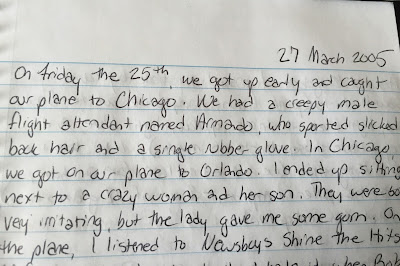 27 March 2005
On friday the 25th, we got up early and caught
our plane to Chicago. We had a creepy male
flight attendant named Armando, who sported slicked
back hair and a single rubber glove. In Chicago,
we got on our plane to Orlando. I ended up sitting
next to a crazy woman and her son. They were both
very irritating, but the lady gave me some gum. On
the plane, I listened to Newsboys Shine the Hits